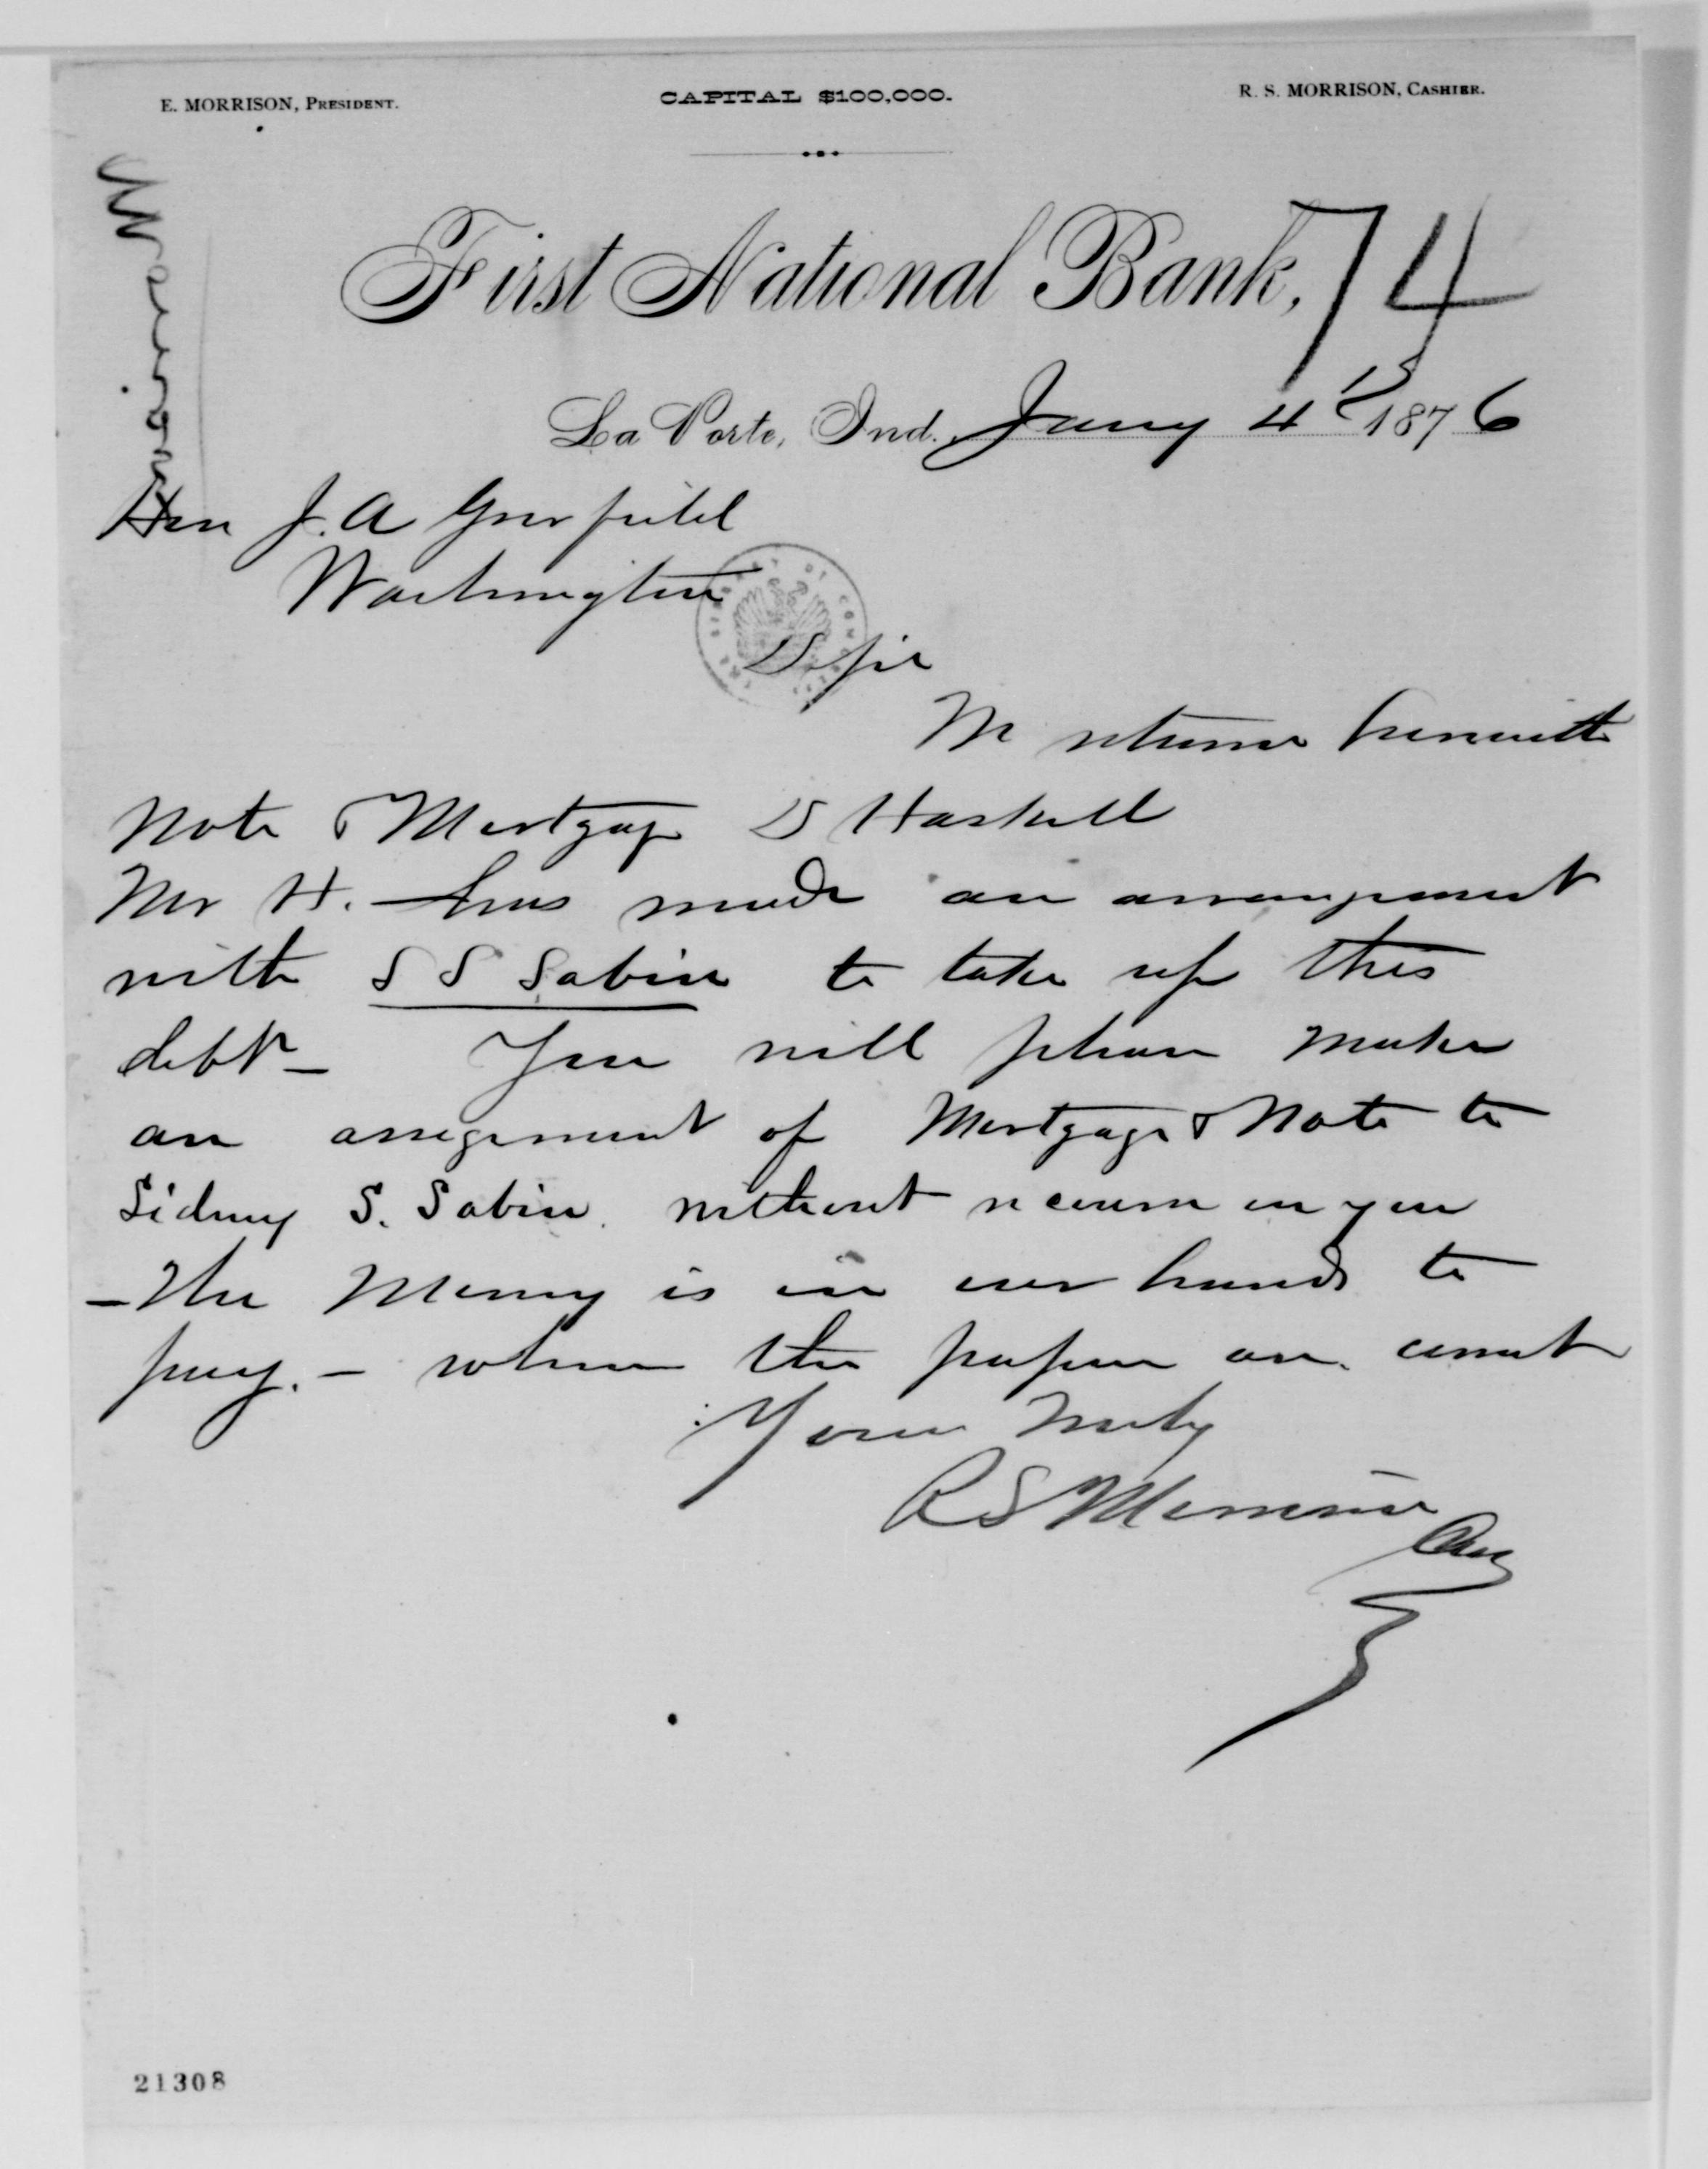 E. MORRISON, PRESIDENT.
CAPITAL $100,000.
R. S. MORRISON, CASHIER.
Morrison
First National Bank,
74
La Porte, Ind. Jany 4th 1876
Hon J. A Garfield
Washington
D Sir
We return herewith
Note & Mortgage D Haskell
Mr H. has made an arrangement
with S S Sabin to take up this
debt — You will please make
an assignment of Mortgage & Note to
Sidney S. Sabin without recourse on you
— The Money is in our hands to
pay. — when the papers are correct
Yours Truly
R S Morrison
Cas
21308